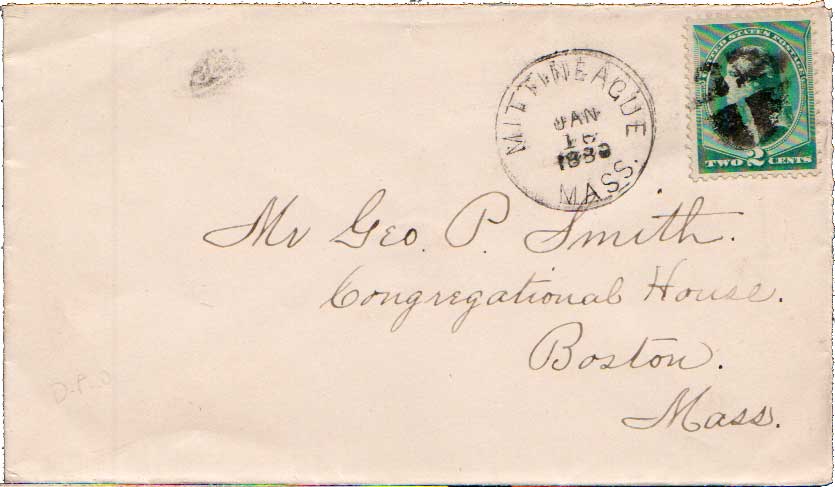 MITTINEAGUE
JAN
MASS.
UNITED STATES POSTAGE
TWO 2 CENTS
Mr Geo. P. Smith.
Congregational House.
Boston.
Mass.
D-P-O